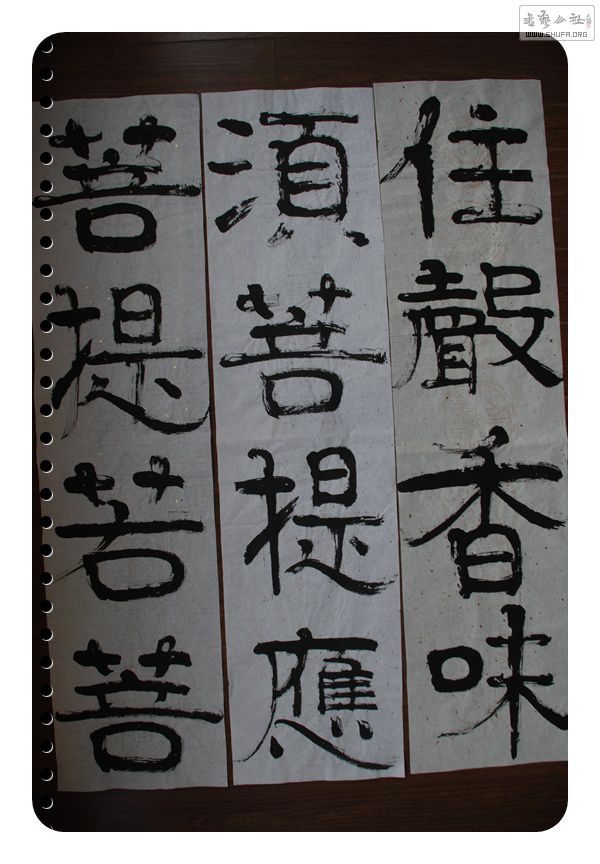 书艺公社
WWW.SHUFA.ORG
住聲香味
須菩提應
菩提若菩